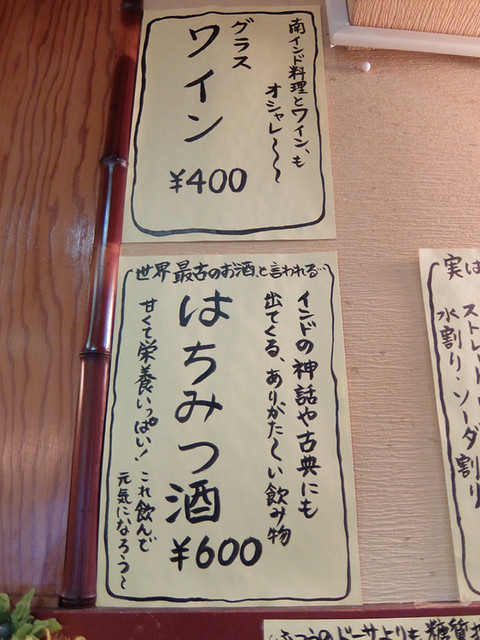 南インド料理とワイン、も
オシャレ〜〜〜
グラス
ワイン
¥400
世界最古のお酒と言われる…
インドの神話や古典にも
出てくる、ありがた〜い飲み物
はちみつ酒
¥600
甘くて栄養いっぱい！これ飲んで
元気になろう〜
実は
ストレート
水割り・ソーダ割り
ふつうのドーサよりも糖質